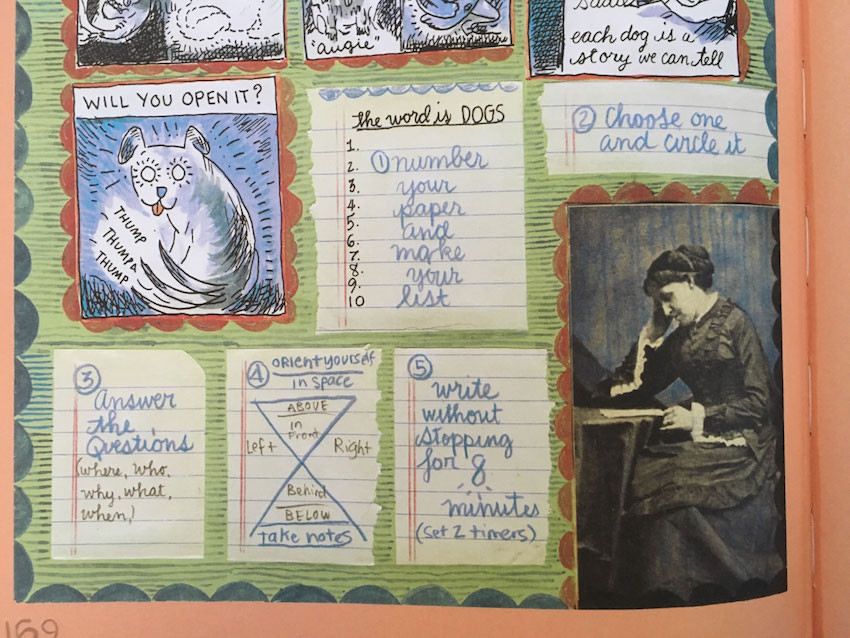 "augie"
each dog is a
story we can tell
WILL YOU OPEN IT?
THUMP
THUMPA
THUMP
the word is DOGS
1.
2.
3.
4.
5.
6.
7.
8.
9.
10
① number
your
paper
and
make
your
list
② Choose one
and circle it
③
Answer
the
Questions
(where, who,
why, what,
when,)
④ orient yourself
in space
ABOVE
in
Front
Left
Right
Behind
BELOW
take notes
⑤
write
without
stopping
for 8
minutes
(set 2 timers)
159